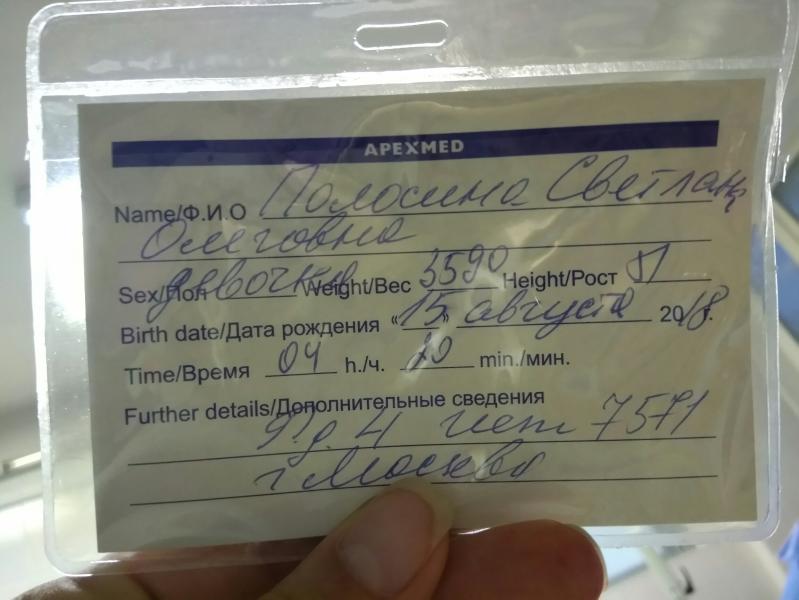 APEXMED
Name/Ф.И.О Полосина Светлана
Олеговна
Sex/Пол девочка Weight/Вес 3590 Height/Рост 51
Birth date/Дата рождения «15» августа 2018г.
Time/Время 04 h./ч. 20 min./мин.
Further details/Дополнительные сведения
4 7571
г Москва